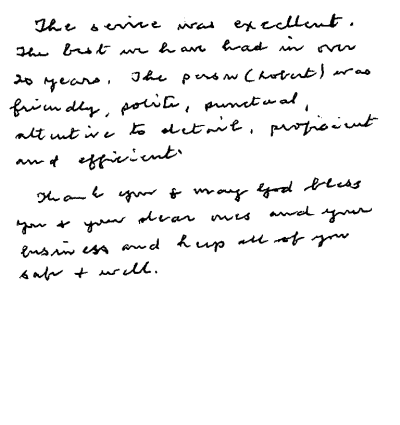 The service was excellent.
The best we have had in over
20 years. The person (Robert) was
friendly, polite, punctual,
attentive to detail, proficient
and efficient.
Thank you & may God bless
you & your dear ones and your
business and keep all of you
safe + well.